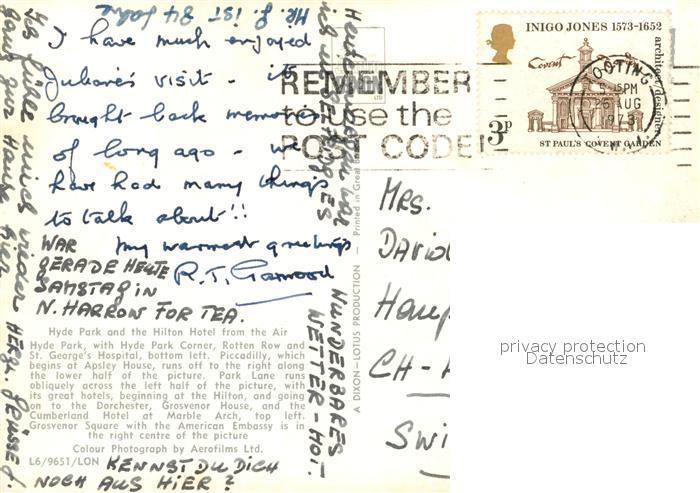 Mr. G. ist 84 Jahre
I have much enjoyed
Juliane's visit - it
brought back memories
of long ago - we
have had many things
to talk about!!
my warmest greetings
R.T. Garwood
WAR
GERADE HEUTE
SAMSTAG IN
N. HARROW FOR TEA.
Hyde Park and the Hilton Hotel from the Air
Hyde Park, with Hyde Park Corner, Rotten Row and
St. George's Hospital, bottom left. Piccadilly, which
begins at Apsley House, runs off to the right along
the lower half of the picture. Park Lane runs
obliquely across the left half of the picture, with
its great hotels, beginning at the Hilton, and going
on to the Dorchester, Grosvenor House, and the
Cumberland Hotel at Marble Arch, top left.
Grosvenor Square with the American Embassy is in
the right centre of the picture
Colour Photograph by Aerofilms Ltd.
L6/9651/LON
KENNST DU DICH
NOCH AUS HIER?
Ich fühle mich wieder
ganz zur Hause hier
HERZL. GRÜSSE J.
ES
WUNDERBARES
WETTER - HOI -
A DIXON-LOTUS PRODUCTION - Printed in Great
REMEMBER
to use the
POST CODE!
INIGO JONES 1573-1652
architect/designer
Covent
3P
ST PAUL'S COVENT GARDEN
TOOTING
PM
AUG
1973
MRS.
DAVID
Haup
CH-
SWI
privacy protection
Datenschutz